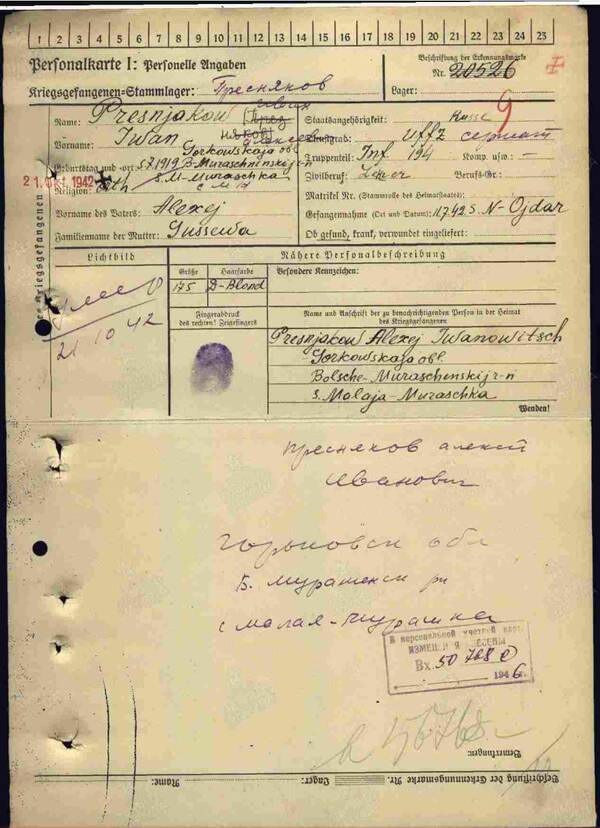 1 2 3 4 5 6 7 8 9 10 11 12 13 14 15 16 17 18 19 20 21 22 23 24 25
Personalkarte I: Personelle Angaben
Beschriftung der Erkennungsmarke
Nr. 20526
Kriegsgefangenen-Stammlager: Пресняков
Lager:
Name: Presnjakow Иван
Vorname: Iwan
Gorkowskaja obl
Geburtstag und -ort: 5.7.1919 B-Muraschenskij r-n
21. Okt. 1942
Religion: orth s. M-Muraschka
с М М
Vorname des Vaters: Alexej
Familienname der Mutter: Gussewa
Staatsangehörigkeit: Russe
Dienstgrad: Uffz сержант
Truppenteil: Inf. 194 Komp. usw.: -
Zivilberuf: Lehrer Berufs-Gr.:
Matrikel Nr. (Stammrolle des Heimatstaates):
Gefangennahme (Ort und Datum): 11.7.42 S. N-Ojdar
Ob gesund, krank, verwundet eingeliefert:
des Kriegsgefangenen
Lichtbild
Nähere Personalbeschreibung
Größe
Haarfarbe
Besondere Kennzeichen:
175
D-Blond
умер
21 10 42
Fingerabdruck
des rechten! Zeigefingers
Name und Anschrift der zu benachrichtigenden Person in der Heimat
des Kriegsgefangenen
Presnjakow Alexej Iwanowitsch
Gorkowskaja obl.
Bolsche-Muraschenskij r-n
s. Malaja-Muraschka
Wenden!
Пресняков Алексей
Иванович
Горьковск обл
Б. Мурашенск рн
с Малая-Мурашка
В персональной учетной карт.
ИЗМЕНЕНИЯ ВНЕСЕНЫ
Вх. 50768
1946 г.
Bemerkungen:
Name:
Lager:
Beschriftung der Erkennungsmarke Nr.